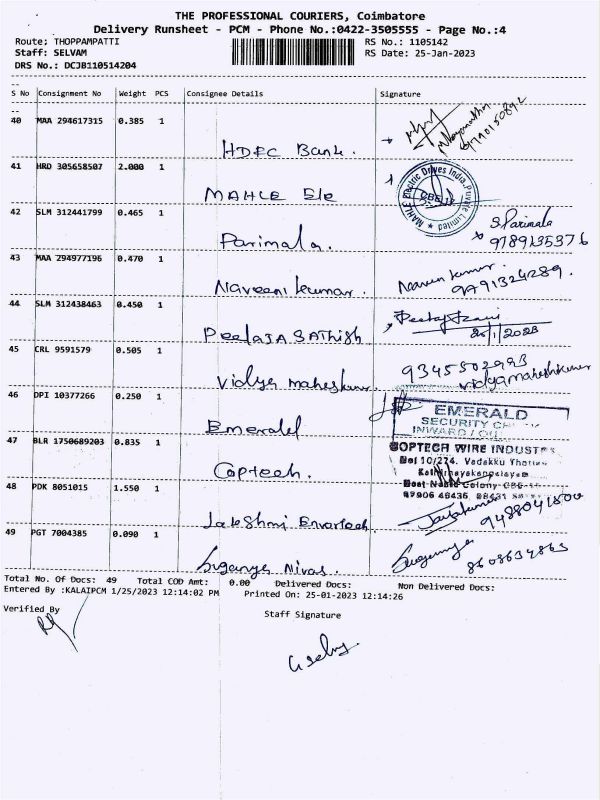 THE PROFESSIONAL COURIERS, Coimbatore
Delivery Runsheet - PCM - Phone No.:0422-3505555 - Page No.:4
Route: THOPPAMPATTI RS No.: 1105142
Staff: SELVAM RS Date: 25-Jan-2023
DRS No.: DCJB110514204
S No Consignment No Weight PCS Consignee Details Signature
40 MAA 294617315 0.385 1
HDFC Bank.
9790150892
41 HRD 305658507 2.000 1
MAHLE Ele
MAHLE Electric Drives India Private Limited
42 SLM 312441799 0.465 1
Parimala.
S. Parimala
9789135376
43 MAA 294977196 0.470 1
Naveen kumar.
Naveen kumar.
9791324289.
44 SLM 312438463 0.450 1
SAThish
25/1/2023
45 CRL 9591579 0.505 1
Vidya maheskumar.
9345502993
vidyamaheshkumar
46 DPI 10377266 0.250 1
Emerald
EMERALD
SECURITY
INWARD /
47 BLR 1750689203 0.835 1
Coptech.
COPTECH WIRE INDUSTR
No: 10/274, Vadakku
48 PDK 8051015 1.550 1
Lakshmi
9488041800
49 PGT 7004385 0.090 1
Suganya Nivas.
Suganya
8608634863
Total No. Of Docs: 49 Total COD Amt: 0.00 Delivered Docs: Non Delivered Docs:
Entered By :KALAIPCM 1/25/2023 12:14:02 PM Printed On: 25-01-2023 12:14:26
Verified By
Staff Signature